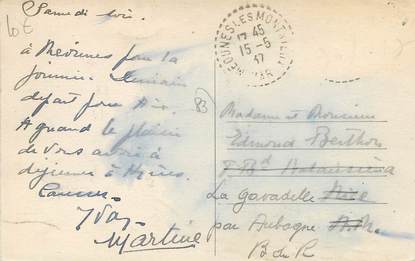 Samedi soir.
10€
à Méounes pour la
journée. Demain
départ pour Aix.
A quand le plaisir
de vous avoir à
déjeuner à
Yvan
Martine
83
MEOUNES LES MONTRIEUX
17 45
15-6
37
VAR
Madame et Monsieur
Edmond Berthon
7 Bd
La Gavadelle Nice
par Aubagne A.M.
B du R